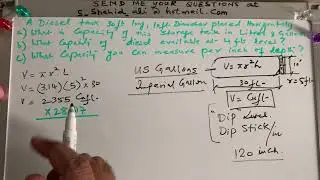 SEND ME YOUR QUESTIONS at
S_Shahid ali @ hotmail.com
A Diesel tank 30ft long, 10ft Diameter placed Horizontally
a) What is Capacity of this storage tank in Litres & Gallons
b) What Capacity of diesel available at 4 ft level?
c) What Capacity you can measure per inch of depth?
V = πr²L
V = (3.14)(5)² x 30
V = 2355 Cuft
x 28.
US Gallons
Imperial Gallon
V = πr²L
10'
30ft
r = 5ft
V = Cuft
"Dip Level
Dip Stick/
in
120 inch.